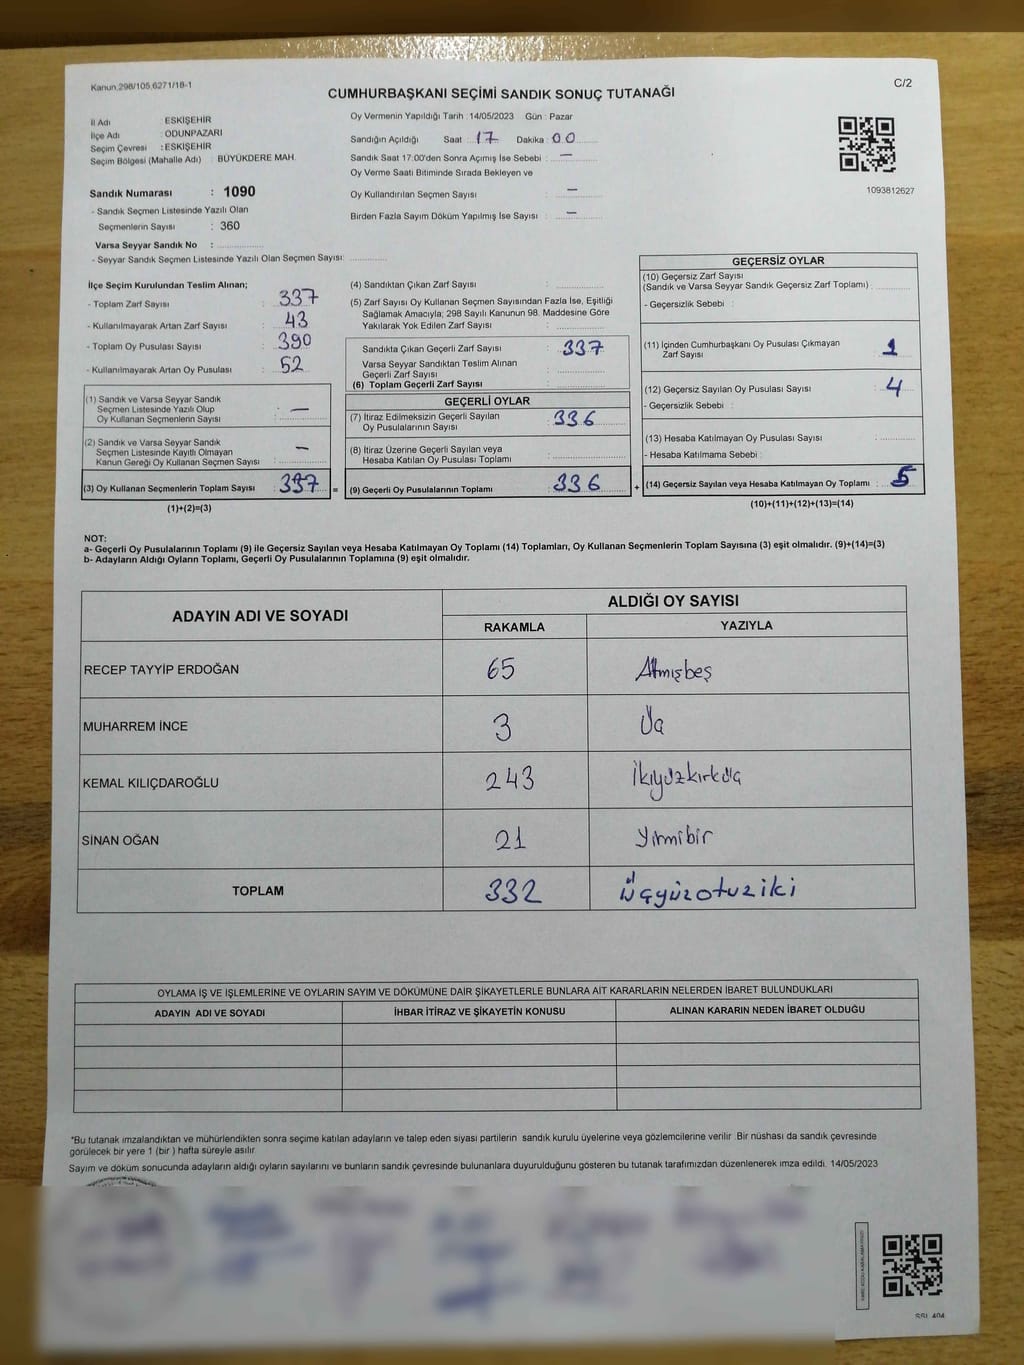 Kanun.298/105,6271/18-1
C/2
CUMHURBAŞKANI SEÇİMİ SANDIK SONUÇ TUTANAĞI
İl Adı : ESKİŞEHİR
İlçe Adı : ODUNPAZARI
Seçim Çevresi : ESKİŞEHİR
Seçim Bölgesi (Mahalle Adı) : BÜYÜKDERE MAH.
Sandık Numarası : 1090
- Sandık Seçmen Listesinde Yazılı Olan
Seçmenlerin Sayısı : 360
Varsa Seyyar Sandık No :
- Seyyar Sandık Seçmen Listesinde Yazılı Olan Seçmen Sayısı:
Oy Vermenin Yapıldığı Tarih : 14/05/2023 Gün : Pazar
Sandığın Açıldığı Saat 17 Dakika : 00
Sandık Saat 17:00'den Sonra Açımış İse Sebebi : —
Oy Verme Saati Bitiminde Sırada Bekleyen ve
Oy Kullandırılan Seçmen Sayısı : —
Birden Fazla Sayım Döküm Yapılmış İse Sayısı : —
1093812627
İlçe Seçim Kurulundan Teslim Alınan;
- Toplam Zarf Sayısı : 337
- Kullanılmayarak Artan Zarf Sayısı : 43
- Toplam Oy Pusulası Sayısı : 390
- Kullanılmayarak Artan Oy Pusulası : 52
(1) Sandık ve Varsa Seyyar Sandık
Seçmen Listesinde Yazılı Olup
Oy Kullanan Seçmenlerin Sayısı : —
(2) Sandık ve Varsa Seyyar Sandık
Seçmen Listesinde Kayıtlı Olmayan
Kanun Gereği Oy Kullanan Seçmen Sayısı : —
(3) Oy Kullanan Seçmenlerin Toplam Sayısı : 337 =
(1)+(2)=(3)
(4) Sandıktan Çıkan Zarf Sayısı :
(5) Zarf Sayısı Oy Kullanan Seçmen Sayısından Fazla İse, Eşitliği
Sağlamak Amacıyla; 298 Sayılı Kanunun 98. Maddesine Göre
Yakılarak Yok Edilen Zarf Sayısı :
Sandıkta Çıkan Geçerli Zarf Sayısı : 337
Varsa Seyyar Sandıktan Teslim Alınan
Geçerli Zarf Sayısı :
(6) Toplam Geçerli Zarf Sayısı :
GEÇERLİ OYLAR
(7) İtiraz Edilmeksizin Geçerli Sayılan
Oy Pusulalarının Sayısı : 336
(8) İtiraz Üzerine Geçerli Sayılan veya
Hesaba Katılan Oy Pusulası Toplamı :
(9) Geçerli Oy Pusulalarının Toplamı : 336 +
GEÇERSİZ OYLAR
(10) Geçersiz Zarf Sayısı
(Sandık ve Varsa Seyyar Sandık Geçersiz Zarf Toplamı) :
- Geçersizlik Sebebi :
(11) İçinden Cumhurbaşkanı Oy Pusulası Çıkmayan
Zarf Sayısı : 1
(12) Geçersiz Sayılan Oy Pusulası Sayısı : 4
- Geçersizlik Sebebi :
(13) Hesaba Katılmayan Oy Pusulası Sayısı :
- Hesaba Katılmama Sebebi :
(14) Geçersiz Sayılan veya Hesaba Katılmayan Oy Toplamı : 5
(10)+(11)+(12)+(13)=(14)
NOT:
a- Geçerli Oy Pusulalarının Toplamı (9) ile Geçersiz Sayılan veya Hesaba Katılmayan Oy Toplamı (14) Toplamları, Oy Kullanan Seçmenlerin Toplam Sayısına (3) eşit olmalıdır. (9)+(14)=(3)
b- Adayların Aldığı Oyların Toplamı, Geçerli Oy Pusulalarının Toplamına (9) eşit olmalıdır.
ADAYIN ADI VE SOYADI ALDIĞI OY SAYISI
RAKAMLA YAZIYLA
RECEP TAYYİP ERDOĞAN 65 Atmışbeş
MUHARREM İNCE 3 Üç
KEMAL KILIÇDAROĞLU 243 İkiyüzkırküç
SİNAN OĞAN 21 Yirmibir
TOPLAM 332 Üçyüzotuziki
OYLAMA İŞ VE İŞLEMLERİNE VE OYLARIN SAYIM VE DÖKÜMÜNE DAİR ŞİKAYETLERLE BUNLARA AİT KARARLARIN NELERDEN İBARET BULUNDUKLARI
ADAYIN ADI VE SOYADI İHBAR İTİRAZ VE ŞİKAYETİN KONUSU ALINAN KARARIN NEDEN İBARET OLDUĞU
*Bu tutanak imzalandıktan ve mühürlendikten sonra seçime katılan adayların ve talep eden siyasi partilerin sandık kurulu üyelerine veya gözlemcilerine verilir. Bir nüshası da sandık çevresinde
görülecek bir yere 1 (bir ) hafta süreyle asılır.
Sayım ve döküm sonucunda adayların aldığı oyların sayılarını ve bunların sandık çevresinde bulunanlara duyurulduğunu gösteren bu tutanak tarafımızdan düzenlenerek imza edildi. 14/05/2023